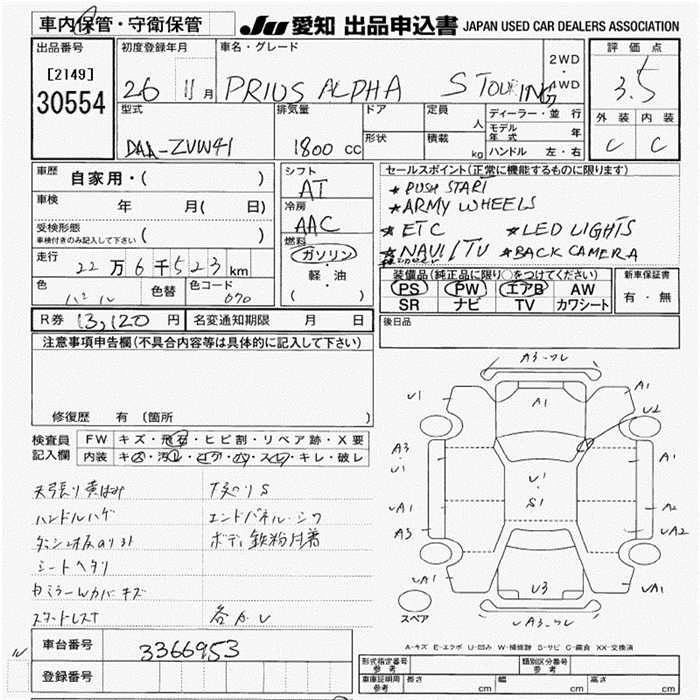 車内保管・守衛保管
JU 愛知 出品申込書 JAPAN USED CAR DEALERS ASSOCIATION
出品番号
[2149]
30554
初度登録年月
26 11月
車名・グレード
PRIUS ALPHA S TOURING
2WD
・
4WD
評価点
3.5
外装 内装
C C
型式
DAA-ZVW41
排気量
1800 CC
ドア
形状
定員
人
積載
kg
ディーラー・並行
モデル年式 年
ハンドル 左・右
車歴
自家用・( )
車検
年 月( 日)
受検形態
車検付きのみ記入して下さい
( )
走行
22万6千523km
色
色替
色コード
070
シフト
AT
冷房
AAC
燃料
ガソリン
軽・油
( )
セールスポイント(正常に機能するものに限ります)
★PUSH START
★ARMY WHEELS
★ETC ★LED LIGHTS
★NAVI/TV ★BACK CAMERA
装備品(純正品に限り○をつけてください)
PS PW エアB AW
SR ナビ TV カワシート
新車保証書
有・無
R券 13,120円
名変通知期限 月 日
後日品
注意事項申告欄(不具合内容等は具体的に記入して下さい)
修復歴 有(箇所 )
検査員
記入欄
FW キズ・飛石・ヒビ割・リペア跡・X要
内装 キズ・汚れ・コゲ・穴・スレ・キレ・破レ
天張り黄ばみ
下廻りS
ハンドルハゲ
エンドパネル・シワ
ボディ鉄粉付着
シートヘタリ
各カレ
車台番号
3366953
登録番号
A3-ワレ
U1
A1
A1
U2
A3
U1
A1
U1
S1
UA1
A2
A3
UA1
UA1
U3
UA1
UA3-ワレ
スペア
A-キズ E-エクボ U-凹み W-補修跡 S-サビ C-腐食 XX-交換済
形式指定番号
参考
類別区分番号
参考
車庫証明用
参考
長さ cm
幅 cm
高さ cm